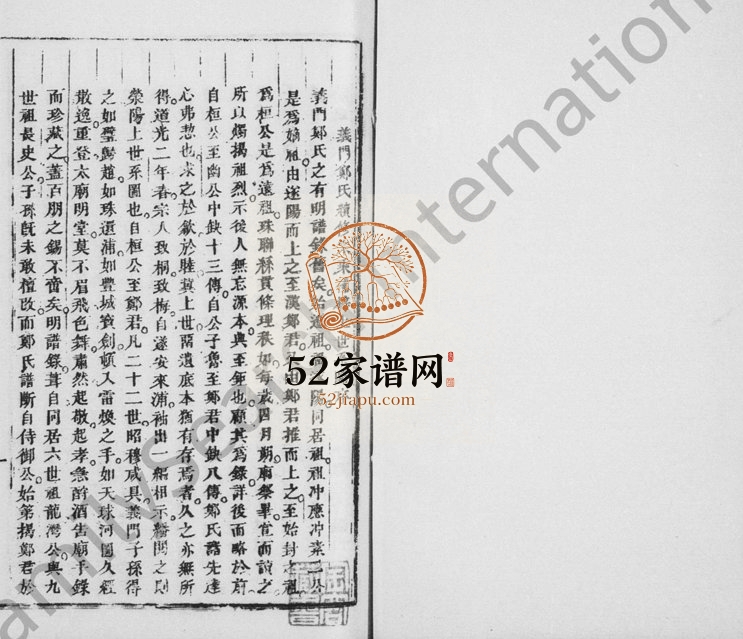 義門鄭氏續修
義門鄭氏之有明譜錄舊矣 祖冲應冲素二公
是為嫡祖由遂陽而上之至漢鄭君 鄭君推而上之至始封之祖
為桓公是為遠祖珠聯絲貫條理秩如每歲四月朔廟祭畢宣而讀之
所以燭揚祖烈示後人無忘源本典至鉅也顧其為錄詳後而略於前
自桓公至幽公中缺十三傳自公子魯至鄭君中缺八傳鄭氏諸先達
心弗愁也求之於歙於睦冀上世閥遺底本猶有存焉者久之亦無所
得道光二年春宗人致桐致梅自遂安來浦袖出一編相示繙閱之則
滎陽上世系圖也自桓公至鄭君凡二十二世昭穆咸具義門子孫得
之如璧歸趙如珠還浦如豐城寶劍頓又雷煥之手如天球河圖久經
散逸重登太廟明堂莫不眉飛色舞肅然起敬起孝急酹酒告廟手錄
而珍藏之蓋百朋之錫不啻矣明譜錄葺自同居六世祖龍灣公與九
世祖長史公子孫既未敢擅改而鄭氏譜斷自侍御公始第揭鄭君於
52家谱网
52jiapu.com
FamilySearch International